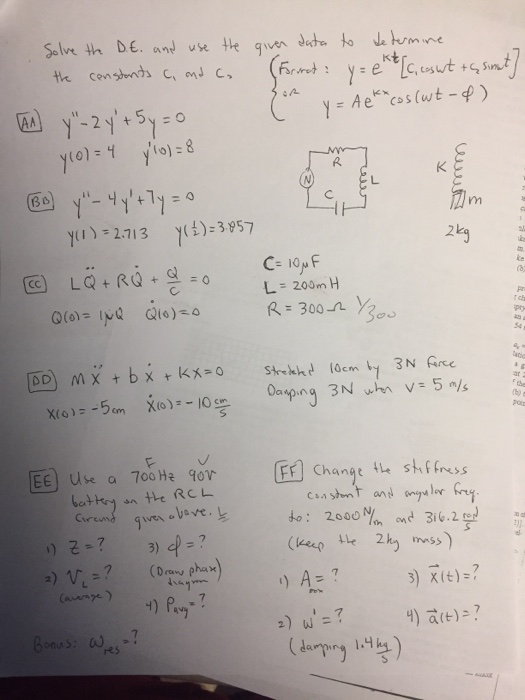 Solve the D.E. and use the given data to determine
the constants C₁ and C₂
(Format: y = e^kt [C₁coswt + C₂ sinwt]
or
y = Ae^kx cos(wt - φ)
AA y"-2y'+5y=0
y(0)=4 y'(0)=8
R
N
L
C
K
m
2kg
BB y"-4y'+7y=0
y(1)=2.713 y(½)=3.857
CC LQ̈ + RQ̇ + Q/C = 0
Q(0)= 1μQ Q̇(0)=0
C= 10μF
L= 200mH
R= 300Ω 1/300
DD mẍ + bẋ + kx=0
x(0)=-5cm ẋ(0)=-10 cm/s
Stretched 10cm by 3N force
Damping 3N when v= 5 m/s
F V
EE Use a 700Hz 90v
battery on the RCL
circuit given above.
1) Z=? 3) φ=?
2) V_L=? (Draw phase diagram)
(average)
4) Pavg=?
Bonus: ω_res=?
FF Change the stiffness
constant and angular freq.
to: 2000 N/m and 316.2 rad/s
(keep the 2kg mass)
1) A=? 3) x⃗(t)=?
2) w'=? 4) a⃗(t)=?
(damping 1.4 kg/s)